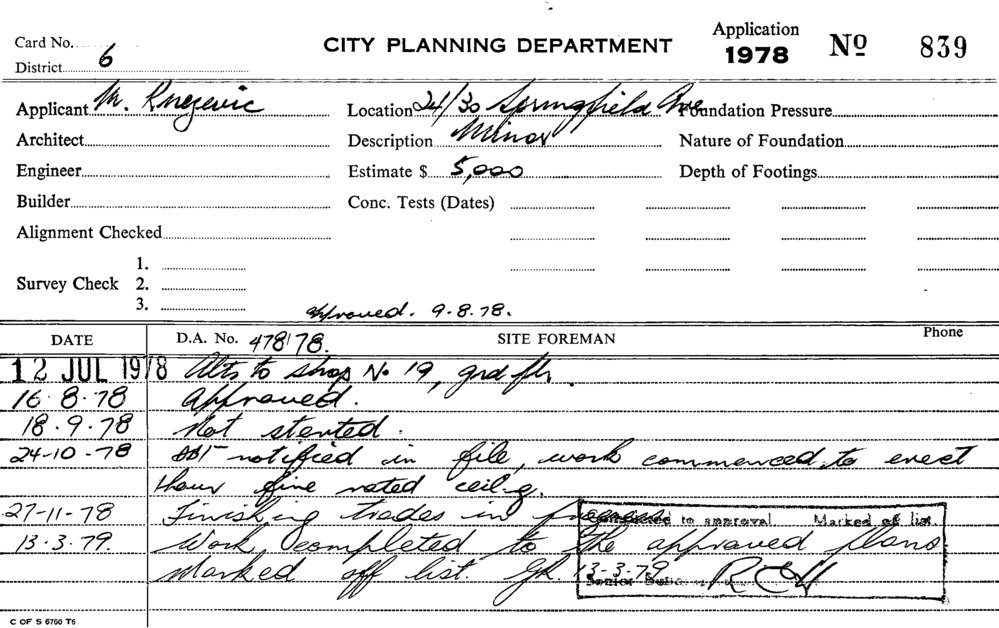 Card No.
District 6
CITY PLANNING DEPARTMENT
Application
1978
Nº 839
Applicant M. Knezevic
Location 24/30 Springfield Ave
Foundation Pressure
Architect
Description Minor
Nature of Foundation
Engineer
Estimate $ 5,000
Depth of Footings
Builder
Conc. Tests (Dates)
Alignment Checked
Survey Check
1.
2.
3.
approved. 9.8.78.
DATE
D.A. No. 478/78.
SITE FOREMAN
Phone
12 JUL 1978 Alts to shop No 19, grd flr.
16.8.78 approved.
18.9.78 Not started.
24-10-78 notified in file, work commenced to erect
1 hour fire rated ceil.g.
27-11-78 Finishing trades in progress
Completed to approval Marked off list.
13.3.79. Work completed to the approved plans
marked off list. 13-3-79
Senior
C OF S 6760 T6